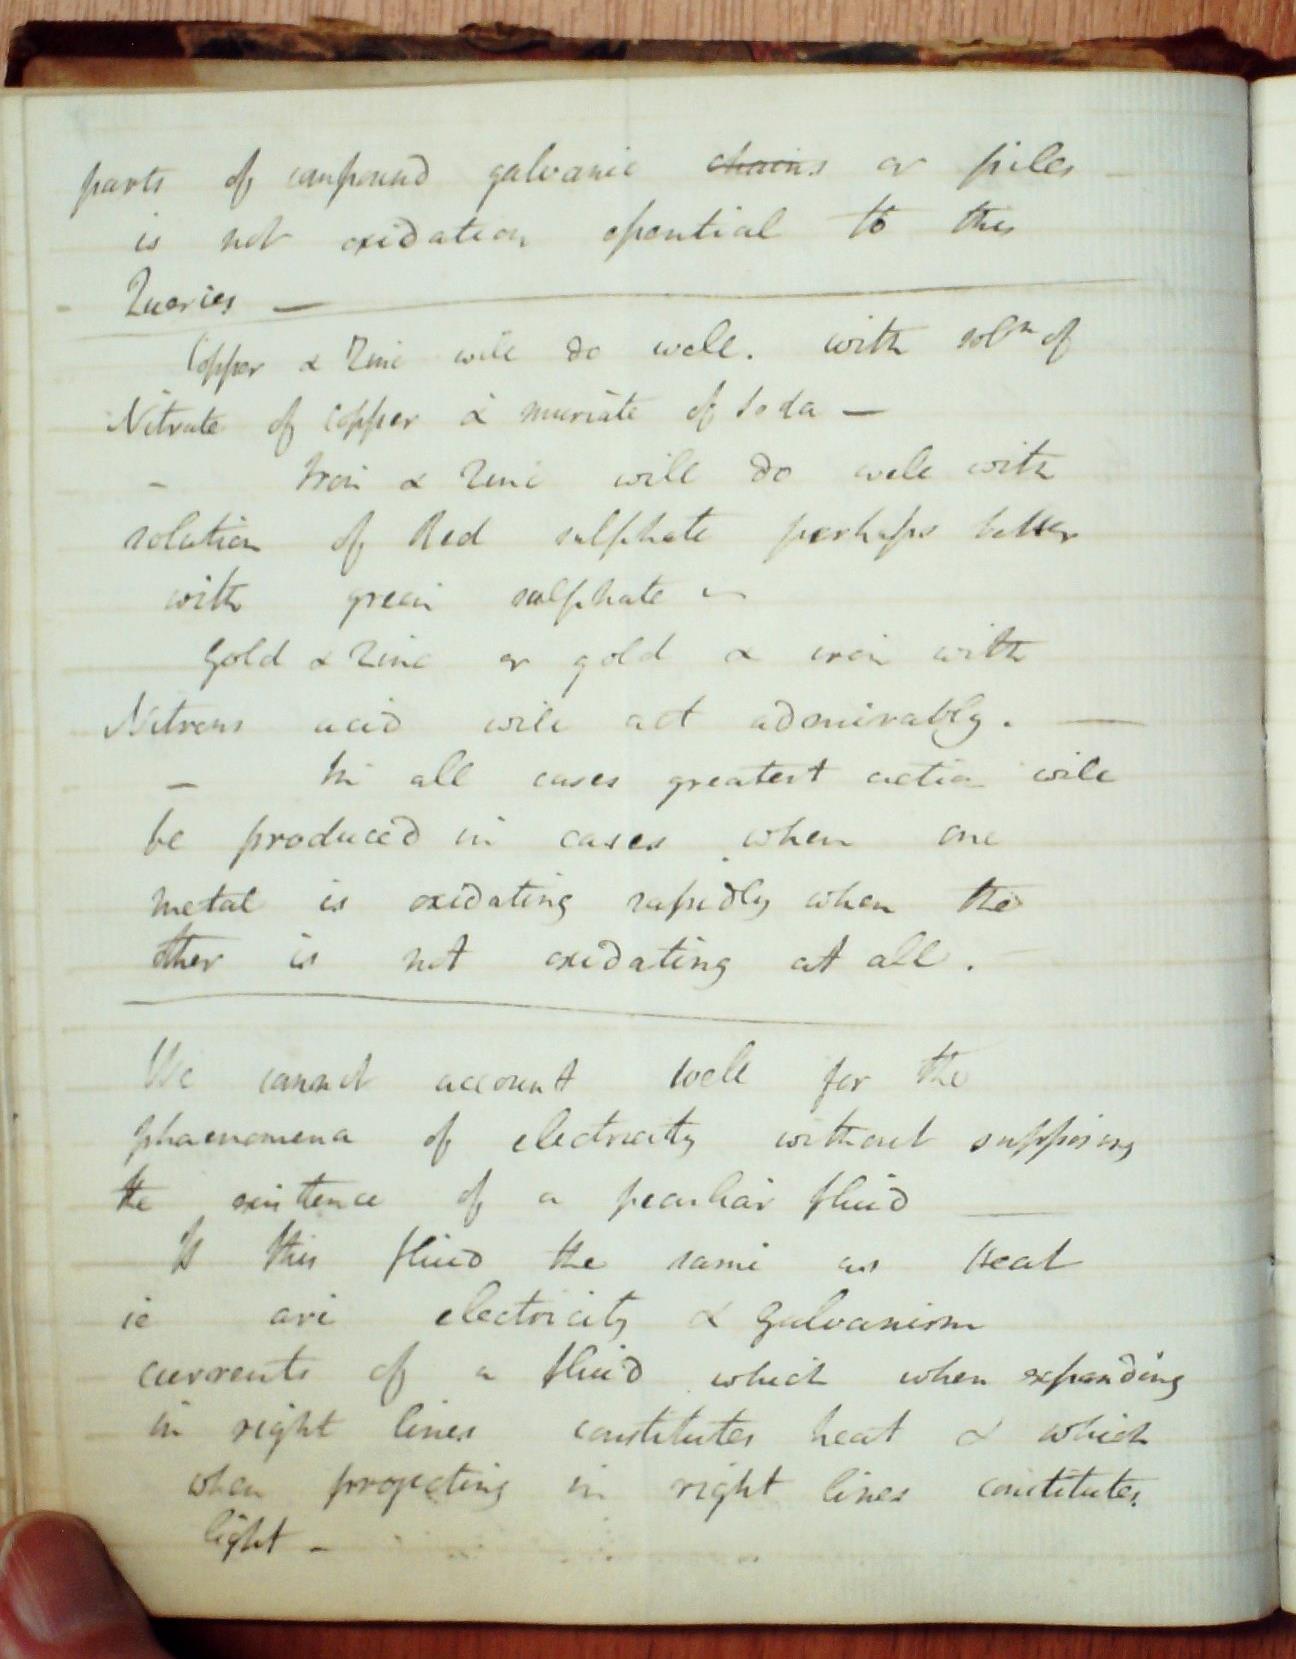 parts of compound galvanic chains or piles
is not oxidation essential to this
Queries —
Copper & Zinc will do well. with soln of
Nitrate of Copper & muriate of soda —
— Iron & Zinc will do well with
solution of Red sulphate perhaps better
with green sulphate —
Gold & Zinc or gold & iron with
Nitrous acid will act admirably. —
— In all cases greatest action will
be produced in cases when one
metal is oxidating rapidly when the
other is not oxidating at all.
We cannot account well for the
phaenomena of electricity without supposing
the existence of a peculiar fluid —
Is this fluid the same as Heat
ie are electricity & Galvanism
currents of a fluid which when expanding
in right lines constitutes heat & which
when projecting in right lines constitutes
light —